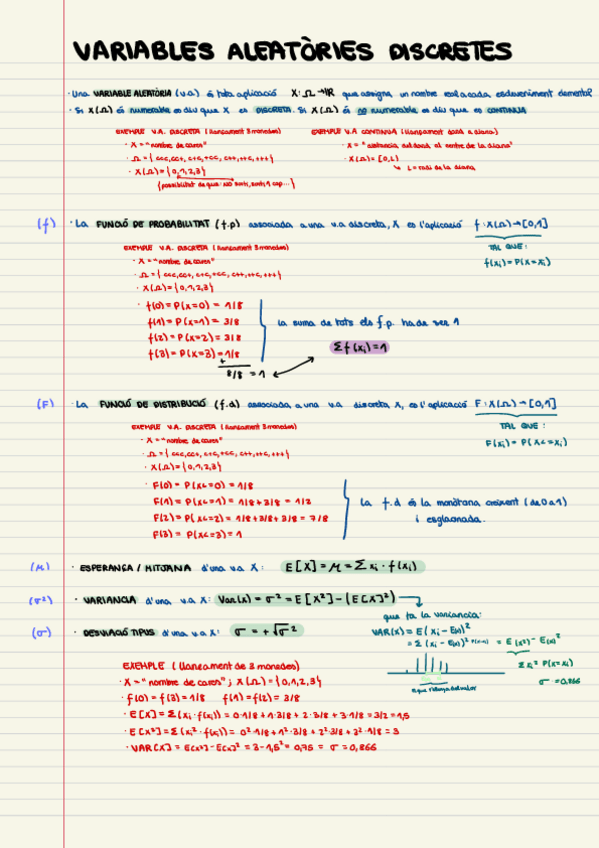 VARIABLES ALEATÒRIES DISCRETES
· Una VARIABLE ALEATÒRIA (v.a) és tota aplicació X: Ω → ℝ que assigna un nombre real a cada esdeveniment elemental
· Si X(Ω) és numerable es diu que X es DISCRETA. Si X(Ω) és no numerable es diu que es CONTINUA
EXEMPLE V.A. DISCRETA (llançament 3 monedes)
· X = "nombre de cares"
· X(Ω) = {0,1,2,3}
EXEMPLE V.A CONTINUA (llançament dard a diana)
· X = "distancia del dard al centre de la diana"
· X(Ω) = [0,L)
L = radi de la diana
(f) · La FUNCIÓ DE PROBABILITAT (f.p) associada a una v.a discreta, X és l'aplicació f: X(Ω) → [0,1]
TAL QUE:
f(xi) = P(X=xi)
EXEMPLE V.A. DISCRETA (llançament 3 monedes)
· X = "nombre de cares"
· X(Ω) = {0,1,2,3}
· f(0) = P(X=0) = 1/8
f(1) = P(X=1) = 3/8
f(2) = P(X=2) = 3/8
f(3) = P(X=3) = 1/8
+
8/8 = 1
la suma de tots els f.p. ha de ser 1
Σf(xi) = 1
(F) · La FUNCIÓ DE DISTRIBUCIÓ (f.d) associada, a una v.a discreta X, és l'aplicació F: X(Ω) → [0,1]
TAL QUE:
F(xi) = P(X<=xi)
EXEMPLE V.A. DISCRETA (llançament 3 monedes)
· X = "nombre de cares"
· X(Ω) = {0,1,2,3}
· F(0) = P(X<=0) = 1/8
F(1) = P(X<=1) = 1/8+3/8 = 1/2
F(2) = P(X<=2) = 1/8+3/8+3/8 = 7/8
F(3) = P(X<=3) = 1
La f.d és la monòtona creixent (de 0 a 1)
i esglaonada.
(μ) · ESPERANÇA / MITJANA d'una v.a X: E[X] = μ = Σ xi · f(xi)
(σ²) · VARIANCIA d'una v.a X: Var(X) = σ² = E[X²] - (E[X]²)
(σ) · DESVIACIÓ TIPUS d'una v.a X: σ = +√σ²
que fa la variancia:
VAR(X) = E(Xi - E(X))²
= Σ(Xi - E(X))² P(X=xi) = E(X²) - E(X)²
Σxi² P(X=xi)
σ = 0,866
EXEMPLE (llançament de 3 monedes)
· X = "nombre de cares"; X(Ω) = {0,1,2,3}
· f(0) = f(3) = 1/8 f(1) = f(2) = 3/8
· E[X] = Σ(xi · f(xi)) = 0·1/8 + 1·3/8 + 2·3/8 + 3·1/8 = 3/2 = 1,5
· E[X²] = Σ(xi² · f(xi)) = 0²·1/8 + 1²·3/8 + 2²·3/8 + 3²·1/8 = 3
· VAR[X] = E[X²] - E[X]² = 3 - 1,5² = 0,75 = σ = 0,866